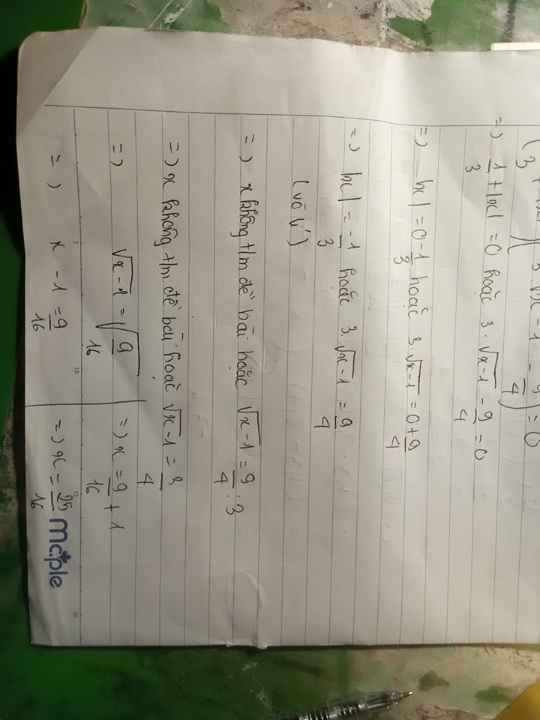 (1/3 + |x|)(3.√x-1 - 9/4) = 0
=) 1/3 + |x| = 0 hoặc 3.√x-1 - 9/4 = 0
=) |x| = 0 - 1/3 hoặc 3.√x-1 = 0 + 9/4
=) |x| = -1/3 hoặc 3.√x-1 = 9/4
(vô lí)
=) x không t/m đề bài hoặc √x-1 = 9/4 : 3
=) x không t/m đề bài hoặc √x-1 = 3/4
=) √x-1 = √9/16
=) x - 1 = 9/16
=) x = 9/16 + 1
=) x = 25/16
maple